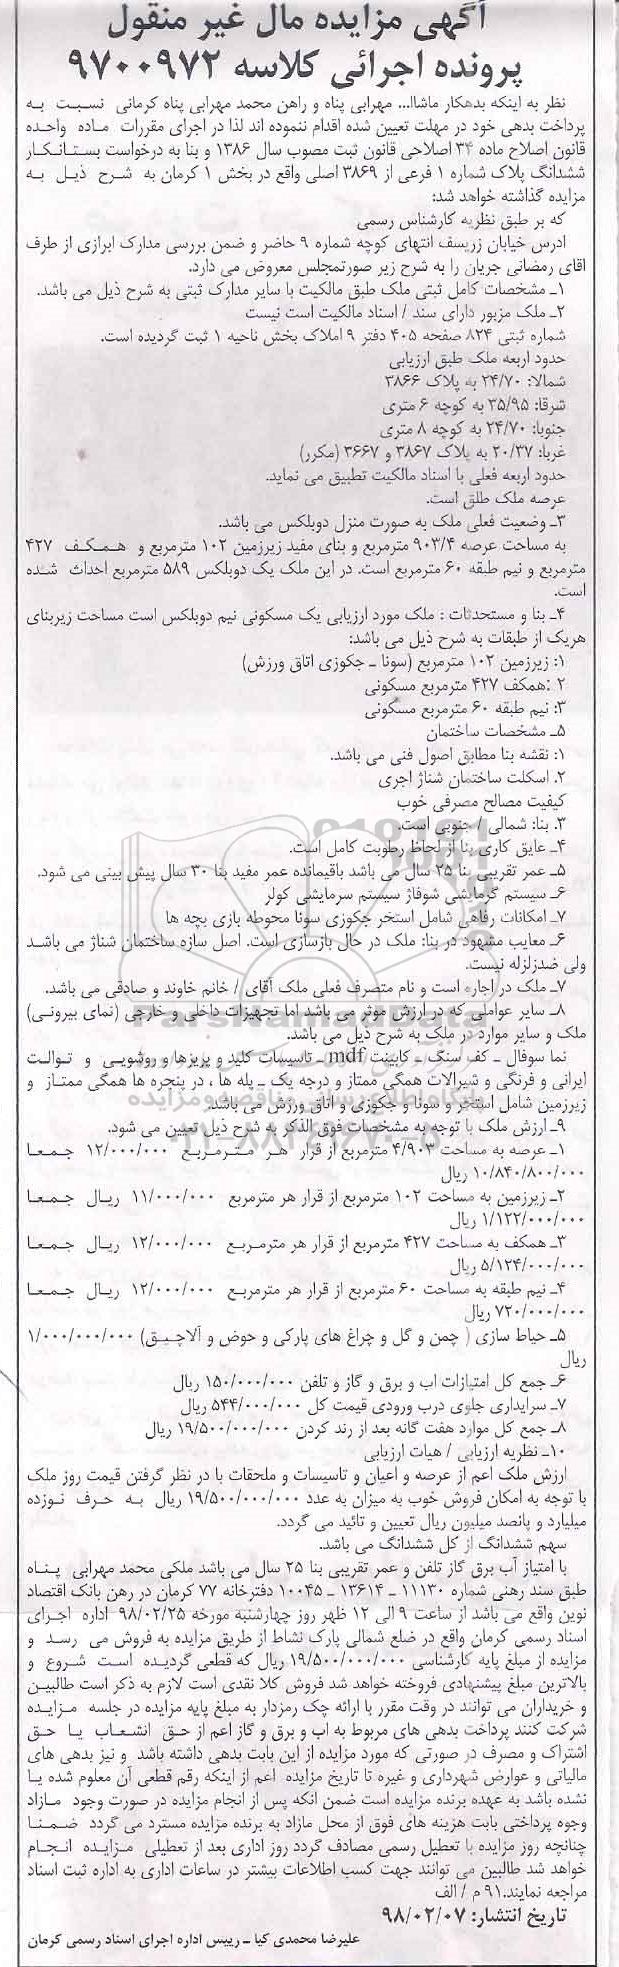 آگهی مزایده مال غیر منقول
پرونده اجرائی کلاسه ۹۷۰۰۹۷۲
نظر به اینکه بدهکار ماشاا... مهرابی پناه و راهن محمد مهرابی پناه کرمانی نسبت به
پرداخت بدهی خود در مهلت تعیین شده اقدام ننموده اند لذا در اجرای مقررات ماده واحده
قانون اصلاح ماده ۳۴ اصلاحی قانون ثبت مصوب سال ۱۳۸۶ و بنا به درخواست بستانکار
ششدانگ پلاک شماره ۱ فرعی از ۳۸۶۹ اصلی واقع در بخش ۱ کرمان به شرح ذیل به
مزایده گذاشته خواهد شد:
که بر طبق نظریه کارشناس رسمی
ادرس خیابان زریسف انتهای کوچه شماره ۹ حاضر و ضمن بررسی مدارک ابرازی از طرف
اقای رمضانی جریان را به شرح زیر صورتمجلس معروض می دارد.
۱ـ مشخصات کامل ثبتی ملک طبق مالکیت با سایر مدارک ثبتی به شرح ذیل می باشد.
۲ـ ملک مزبور دارای سند / اسناد مالکیت است نیست
شماره ثبتی ۸۲۴ صفحه ۴۰۵ دفتر ۹ املاک بخش ناحیه ۱ ثبت گردیده است.
حدود اربعه ملک طبق ارزیابی
شمالا: ۲۴/۷۰ به پلاک ۳۸۶۶
شرقا: ۳۵/۹۵ به کوچه ۶ متری
جنوبا: ۲۴/۷۰ به کوچه ۸ متری
غربا: ۲۰/۳۷ به پلاک ۳۸۶۷ و ۳۶۶۷ (مکرر)
حدود اربعه فعلی با اسناد مالکیت تطبیق می نماید.
عرصه ملک طلق است.
۳ـ وضعیت فعلی ملک به صورت منزل دوبلکس می باشد.
به مساحت عرصه ۹۰۳/۴ مترمربع و بنای مفید زیرزمین ۱۰۲ مترمربع و همکف ۴۲۷
مترمربع و نیم طبقه ۶۰ مترمربع است. در این ملک یک دوبلکس ۵۸۹ مترمربع احداث شده
است.
۴ـ بنا و مستحدثات : ملک مورد ارزیابی یک مسکونی نیم دوبلکس است مساحت زیربنای
هریک از طبقات به شرح ذیل می باشد:
۱: زیرزمین ۱۰۲ مترمربع (سونا ـ جکوزی اتاق ورزش)
۲ :همکف ۴۲۷ مترمربع مسکونی
۳: نیم طبقه ۶۰ مترمربع مسکونی
۵ـ مشخصات ساختمان
۱: نقشه بنا مطابق اصول فنی می باشد.
۲. اسکلت ساختمان شناژ اجری
کیفیت مصالح مصرفی خوب
۳. بنا: شمالی / جنوبی است.
۴ـ عایق کاری بنا از لحاظ رطوبت کامل است.
۵ـ عمر تقریبی بنا ۲۵ سال می باشد باقیمانده عمر مفید بنا ۳۰ سال پیش بینی می شود.
۶ـ سیستم گرمایشی شوفاژ سیستم سرمایشی کولر
۷ـ امکانات رفاهی شامل استخر جکوزی سونا محوطه بازی بچه ها
۶ـ معایب مشهود در بنا: ملک در حال بازسازی است. اصل سازه ساختمان شناژ می باشد
ولی ضدزلزله نیست.
۷ـ ملک در اجاره است و نام متصرف فعلی ملک آقای / خانم خاوند و صادقی می باشد.
۸ـ سایر عواملی که در ارزش موثر می باشد اما تجهیزات داخلی و خارجی (نمای بیرونی)
ملک و سایر موارد در ملک به شرح ذیل می باشد.
نما سوفال ـ کف سنگ ـ کابینت mdf ـ تاسیسات کلید و پریزها و روشویی و توالت
ایرانی و فرنگی و شیرالات همگی ممتاز و درجه یک ـ پله ها ، در پنجره ها همگی ممتاز و
زیرزمین شامل استخر و سونا و جکوزی و اتاق ورزش می باشد.
۹ـ ارزش ملک با توجه به مشخصات فوق الذکر به شرح ذیل تعیین می شود.
۱ـ عرصه به مساحت ۴/۹۰۳ مترمربع از قرار هر مترمربع ۱۲/۰۰۰/۰۰۰ جمعا
۱۰/۸۴۰/۸۰۰/۰۰۰ ریال
۲ـ زیرزمین به مساحت ۱۰۲ مترمربع از قرار هر مترمربع ۱۱/۰۰۰/۰۰۰ ریال جمعا
۱/۱۲۲/۰۰۰/۰۰۰ ریال
۳ـ همکف به مساحت ۴۲۷ مترمربع از قرار هر مترمربع ۱۲/۰۰۰/۰۰۰ ریال جمعا
۵/۱۲۴/۰۰۰/۰۰۰ ریال
۴ـ نیم طبقه به مساحت ۶۰ مترمربع از قرار هر مترمربع ۱۲/۰۰۰/۰۰۰ ریال جمعا
۷۲۰/۰۰۰/۰۰۰ ریال
۵ـ حیاط سازی ( چمن و گل و چراغ های پارکی و حوض و آلاچیق) ۱/۰۰۰/۰۰۰/۰۰۰
ریال
۶ـ جمع کل امتیازات اب و برق و گاز و تلفن ۱۵۰/۰۰۰/۰۰۰ ریال
۷ـ سرایداری جلوی درب ورودی قیمت کل ۵۴۴/۰۰۰/۰۰۰ ریال
۸ـ جمع کل موارد هفت گانه بعد از رند کردن ۱۹/۵۰۰/۰۰۰/۰۰۰ ریال
۱۰ـ نظریه ارزیابی / هیات ارزیابی
ارزش ملک اعم از عرصه و اعیان و تاسیسات و ملحقات با در نظر گرفتن قیمت روز ملک
با توجه به امکان فروش خوب به میزان به عدد ۱۹/۵۰۰/۰۰۰/۰۰۰ ریال به حرف نوزده
میلیارد و پانصد میلیون ریال تعیین و تائید می گردد.
سهم ششدانگ از کل ششدانگ می باشد.
با امتیاز آب برق گاز تلفن و عمر تقریبی بنا ۲۵ سال می باشد ملکی محمد مهرابی پناه
طبق سند رهنی شماره ۱۱۱۳۰ ـ ۱۳۶۱۴ ـ ۱۰۰۴۵ دفترخانه ۷۷ کرمان در رهن بانک اقتصاد
نوین واقع می باشد از ساعت ۹ الی ۱۲ ظهر روز چهارشنبه مورخه ۹۸/۰۲/۲۵ اداره اجرای
اسناد رسمی کرمان واقع در ضلع شمالی پارک نشاط از طریق مزایده به فروش می رسد و
مزایده از مبلغ پایه کارشناسی ۱۹/۵۰۰/۰۰۰/۰۰۰ ریال که قطعی گردیده است شروع و
بالاترین مبلغ پیشنهادی فروخته خواهد شد فروش کلا نقدی است لازم به ذکر است طالبین
و خریداران می توانند در وقت مقرر با ارائه چک رمزدار به مبلغ پایه مزایده در جلسه مزایده
شرکت کنند پرداخت بدهی های مربوط به اب و برق و گاز اعم از حق انشعاب یا حق
اشتراک و مصرف در صورتی که مورد مزایده از این بابت بدهی داشته باشد و نیز بدهی های
مالیاتی و عوارض شهرداری و غیره تا تاریخ مزایده اعم از اینکه رقم قطعی آن معلوم شده یا
نشده باشد به عهده برنده مزایده است ضمن انکه پس از انجام مزایده در صورت وجود مازاد
وجوه پرداختی بابت هزینه های فوق از محل مازاد به برنده مزایده مسترد می گردد ضمنا
چنانچه روز مزایده با تعطیل رسمی مصادف گردد روز اداری بعد از تعطیلی مزایده انجام
خواهد شد طالبین می توانند جهت کسب اطلاعات بیشتر در ساعات اداری به اداره ثبت اسناد
مراجعه نمایند.۹۱ م / الف
تاریخ انتشار: ۹۸/۰۲/۰۷
علیرضا محمدی کیا ـ رییس اداره اجرای اسناد رسمی کرمان